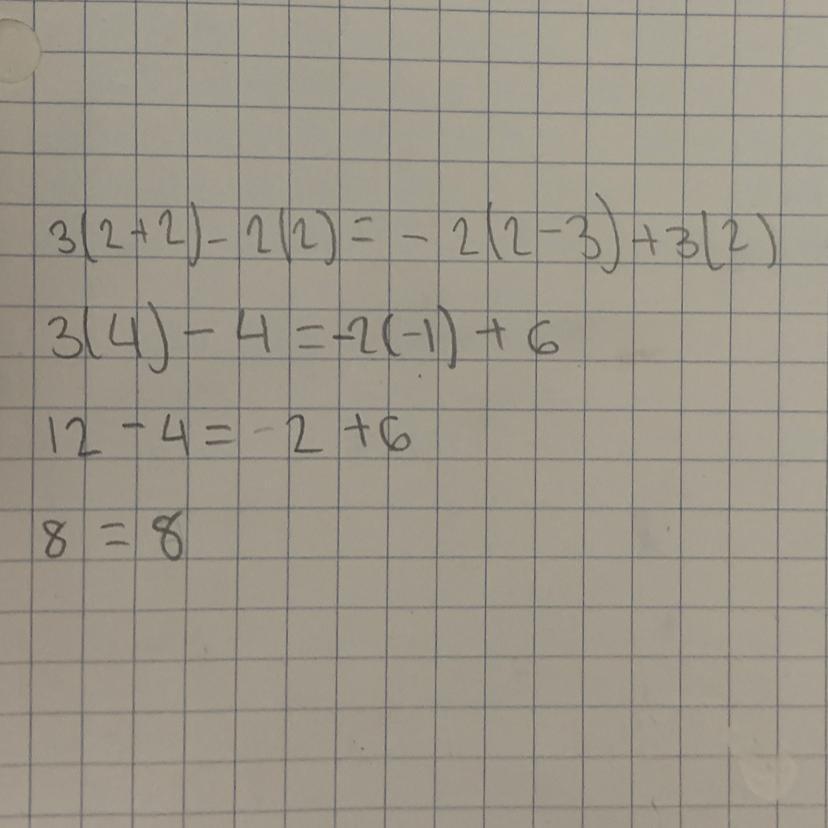 3(2+2)-2(2)=-2(2-3)+3(2)
3(4)-4=-2(-1)+6
12-4=-2+6
8=8